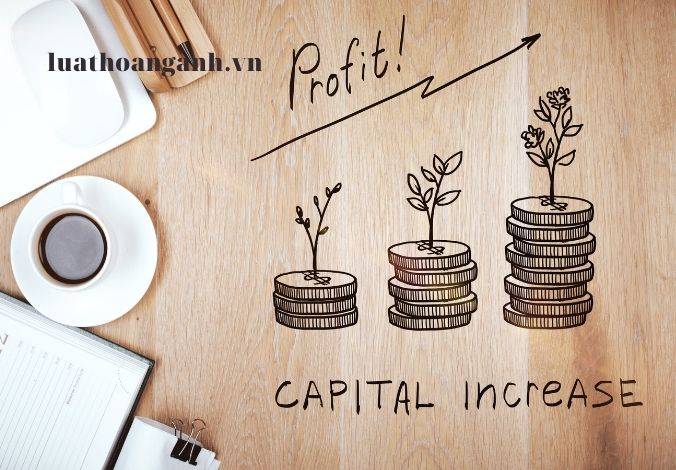 luathoanganh.vn
Profit!
CAPITAL INCREASE